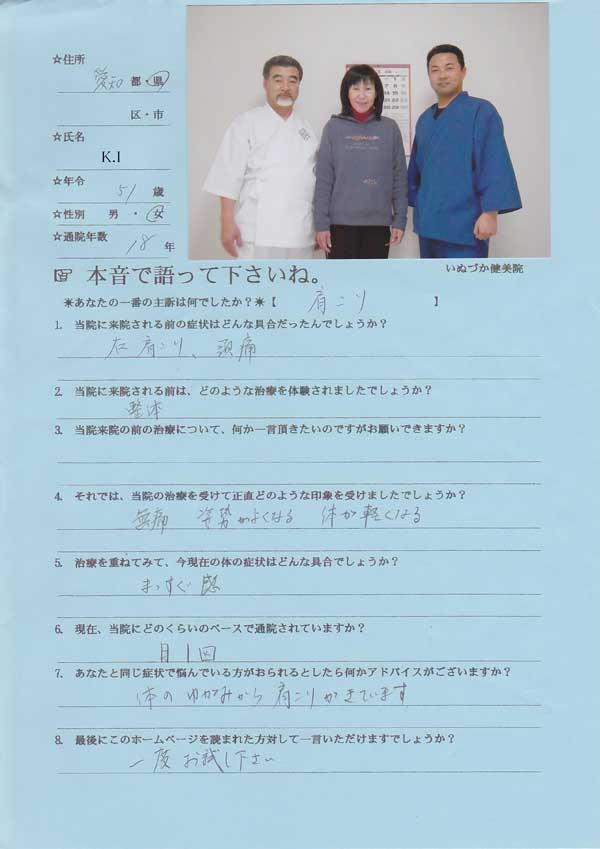 ☆住所
愛知 都・県
区・市
☆氏名
K.I
☆年令
51 歳
☆性別 男・女
☆通院年数
18 年
いぬづか健美院
本音で語って下さいね。
✳あなたの一番の主訴は何でしたか?✳【 肩こり 】
1. 当院に来院される前の症状はどんな具合だったんでしょうか?
左肩こり、頭痛
2. 当院に来院される前は、どのような治療を体験されましたでしょうか?
整体
3. 当院来院の前の治療について、何か一言頂きたいのですがお願いできますか?
4. それでは、当院の治療を受けて正直どのような印象を受けましたでしょうか?
無痛 姿勢がよくなる 体が軽くなる
5. 治療を重ねてみて、今現在の体の症状はどんな具合でしょうか?
まっすぐ感
6. 現在、当院にどのくらいのペースで通院されていますか?
月1回
7. あなたと同じ症状で悩んでいる方がおられるとしたら何かアドバイスがございますか?
体のゆがみから肩こりがきています
8. 最後にこのホームページを読まれた方対して一言いただけますでしょうか?
一度お試し下さい